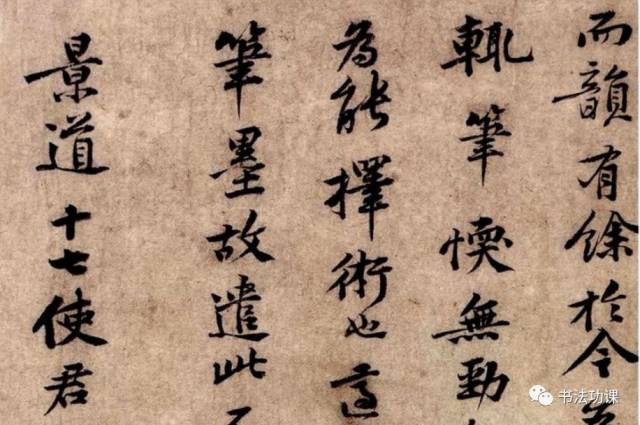 而韻有余於今
輒筆愞無勁
為能擇術也適
筆墨故遣此
景道十七使君
书法功课